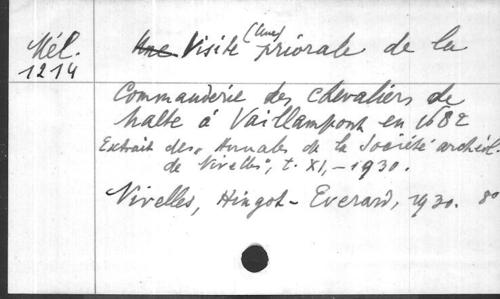 Mél.
1214
Une Visite (Une) priorale de la
Commanderie des Chevaliers de
Malte à Vaillampont en 1682
Extrait des "Annales de la Société archéol.
de Nivelles", t. XI, - 1930.
Nivelles, Hingot - Everard, 1930. 8°